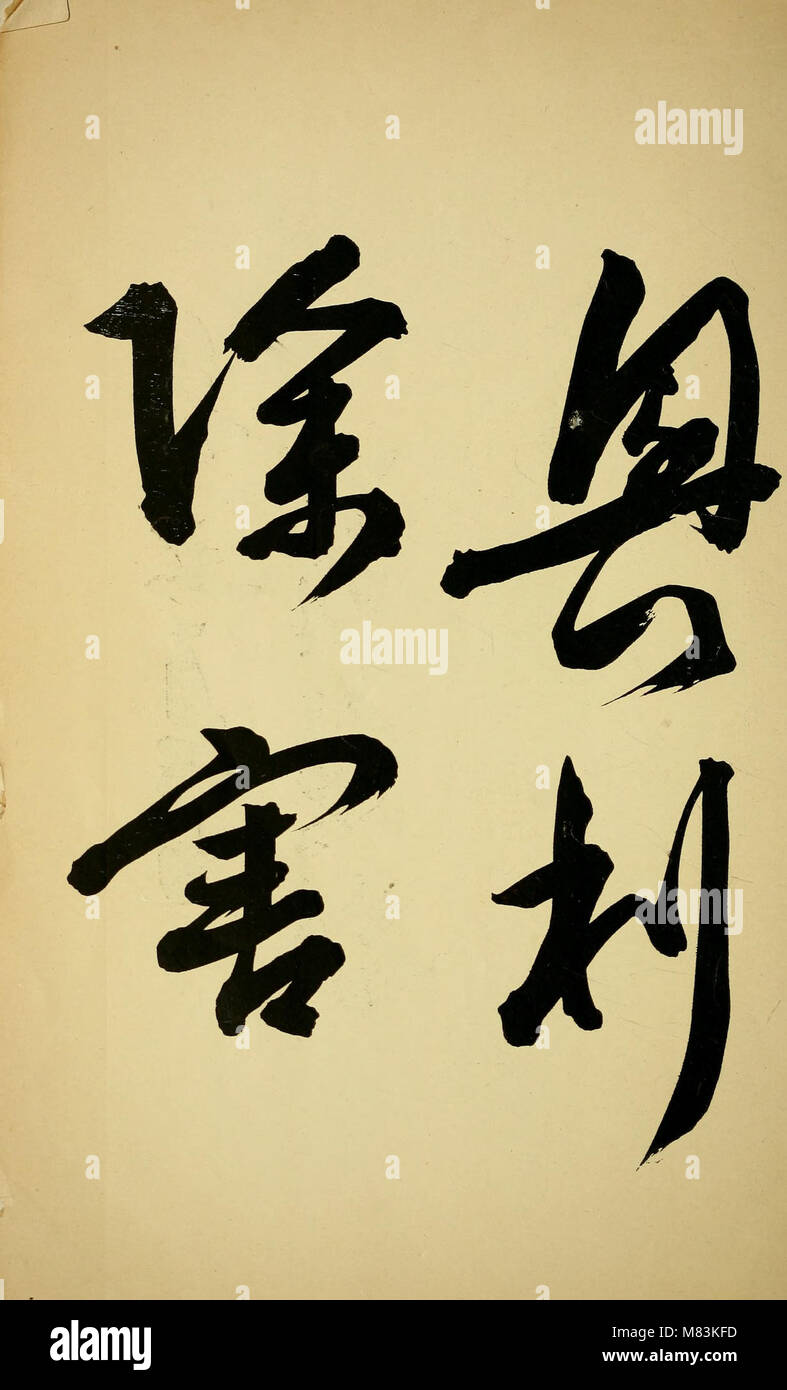 興利
除害
alamy
alamy
Image ID: M83KFD
www.alamy.com